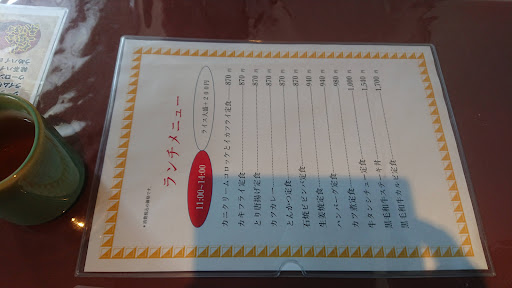 ランチメニュー
11:00~14:00
ライス大盛+200円
カニクリームコロッケとイカフライ定食 870円
カキフライ定食 870円
とり唐揚げ定食 870円
カツカレー 870円
とんかつ定食 870円
石焼ビビンバ定食 870円
生姜焼定食 940円
ハンバーグ定食 940円
カツ煮定食 980円
牛タンシチュー定食 円
黒毛和牛ステーキ丼 1,540円
黒毛和牛カルビ定食 1,700円